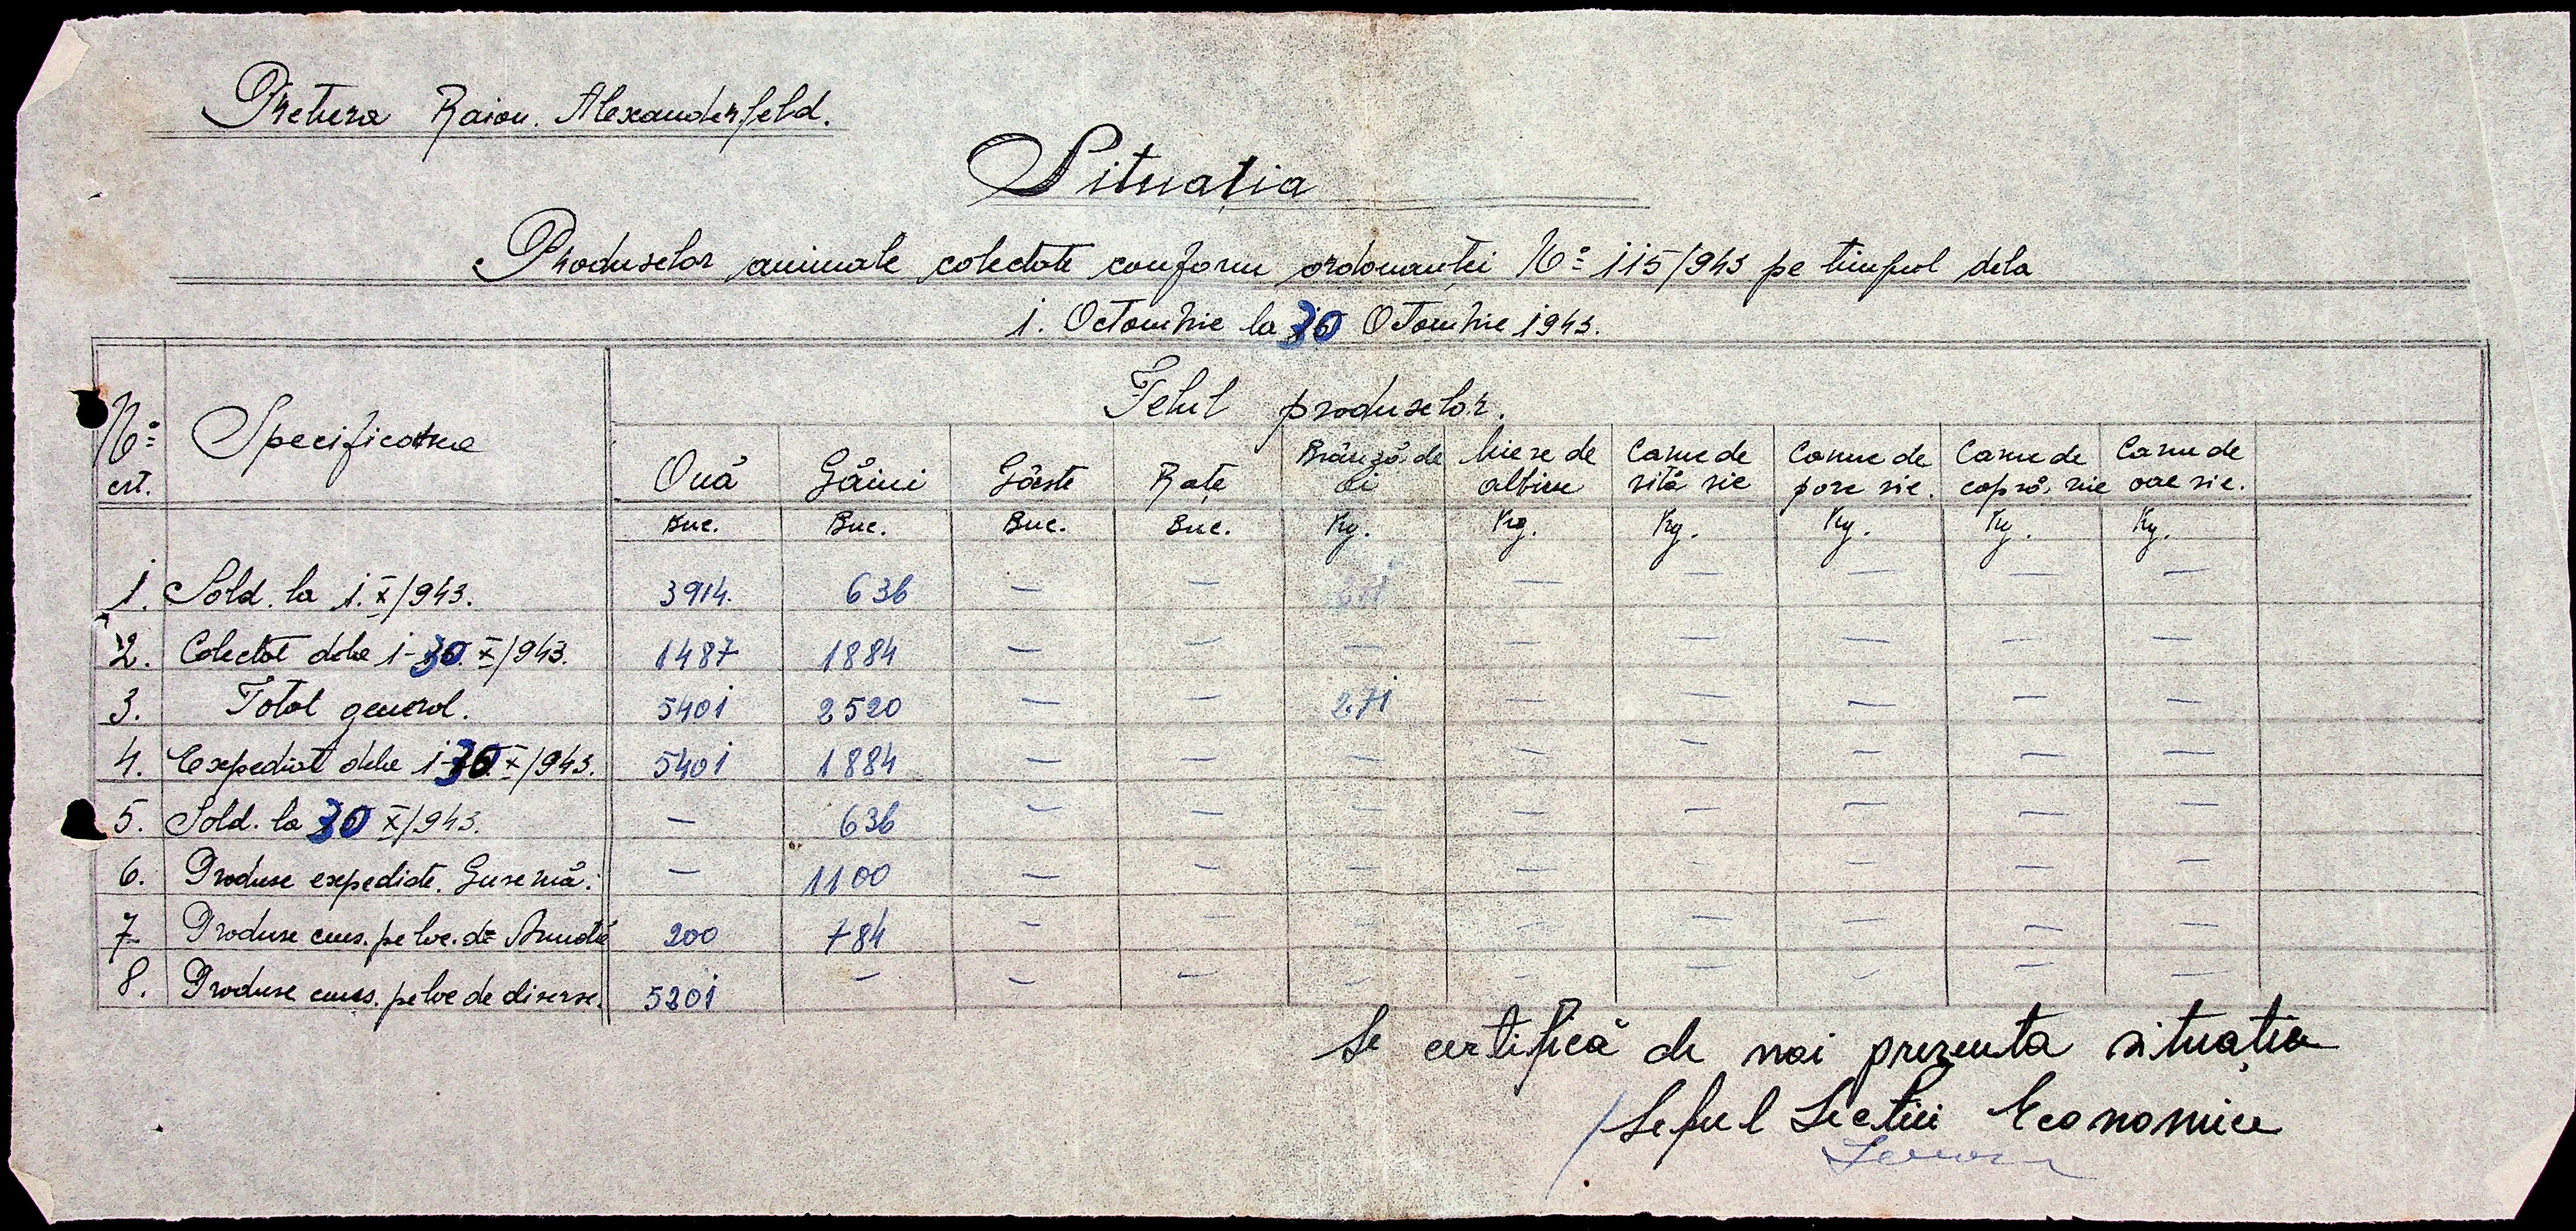 Pretura Raion. Alexanderfeld.
Situatia
Produselor animale colectate conform ordonanței No 115/943 pe timpul dela
1. Octombrie la 30 Octombrie 1943.
No crt. Specificarea Felul produselor.
Ouă Găini Gâște Rațe Brânză de oi Miere de albine Carne de vită vie Carne de porc vie. Carne de capră, vie Carne de oae vie.
Buc. Buc. Buc. Buc. Kg. Kg. Kg. Kg. Kg. Kg.
1. Sold. la 1. X/943. 3914. 636 — — 271 — — — — —
2. Colectat dela 1-30. X/943. 1487 1884 — — — — — — — —
3. Total general. 5401 2520 — — 271 — — — — —
4. Expediat dela 1-30 X/943. 5401 1884 — — — — — — — —
5. Sold. la 30 X/943. — 636 — — — — — — — —
6. Produse expediate. — 1100 — — — — — — — —
7. Produse cons. pe loc. de Armată 200 784 — — — — — — — —
8. Produse cons. pe loc de diverse. 5201 — — — — — — — — —
Se certifică de noi prezenta situație
/ Seful Sectiei Economice